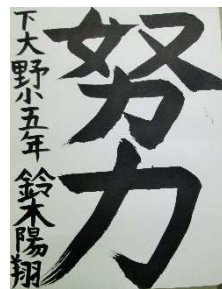 努力
下大野小五年 鈴木陽翔